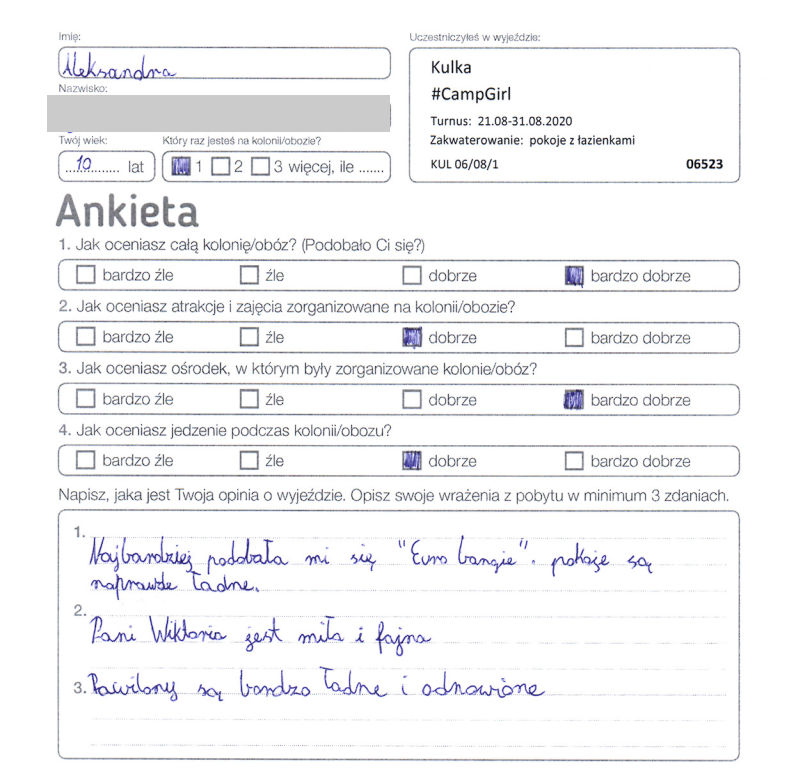 Imię:
Aleksandra
Nazwisko:
Twój wiek:
10 lat
Który raz jesteś na kolonii/obozie?
1 2 3 więcej, ile .......
Uczestniczyłeś w wyjeździe:
Kulka
#CampGirl
Turnus: 21.08-31.08.2020
Zakwaterowanie: pokoje z łazienkami
KUL 06/08/1 06523
Ankieta
1. Jak oceniasz całą kolonię/obóz? (Podobało Ci się?)
bardzo źle źle dobrze bardzo dobrze
2. Jak oceniasz atrakcje i zajęcia zorganizowane na kolonii/obozie?
bardzo źle źle dobrze bardzo dobrze
3. Jak oceniasz ośrodek, w którym były zorganizowane kolonie/obóz?
bardzo źle źle dobrze bardzo dobrze
4. Jak oceniasz jedzenie podczas kolonii/obozu?
bardzo źle źle dobrze bardzo dobrze
Napisz, jaka jest Twoja opinia o wyjeździe. Opisz swoje wrażenia z pobytu w minimum 3 zdaniach.
1. Najbardziej podobała mi się "Euro bangie". pokoje są
naprawde ładne.
2. Pani Wiktoria jest miła i fajna
3. Pawilony są bardzo ładne i odnowione